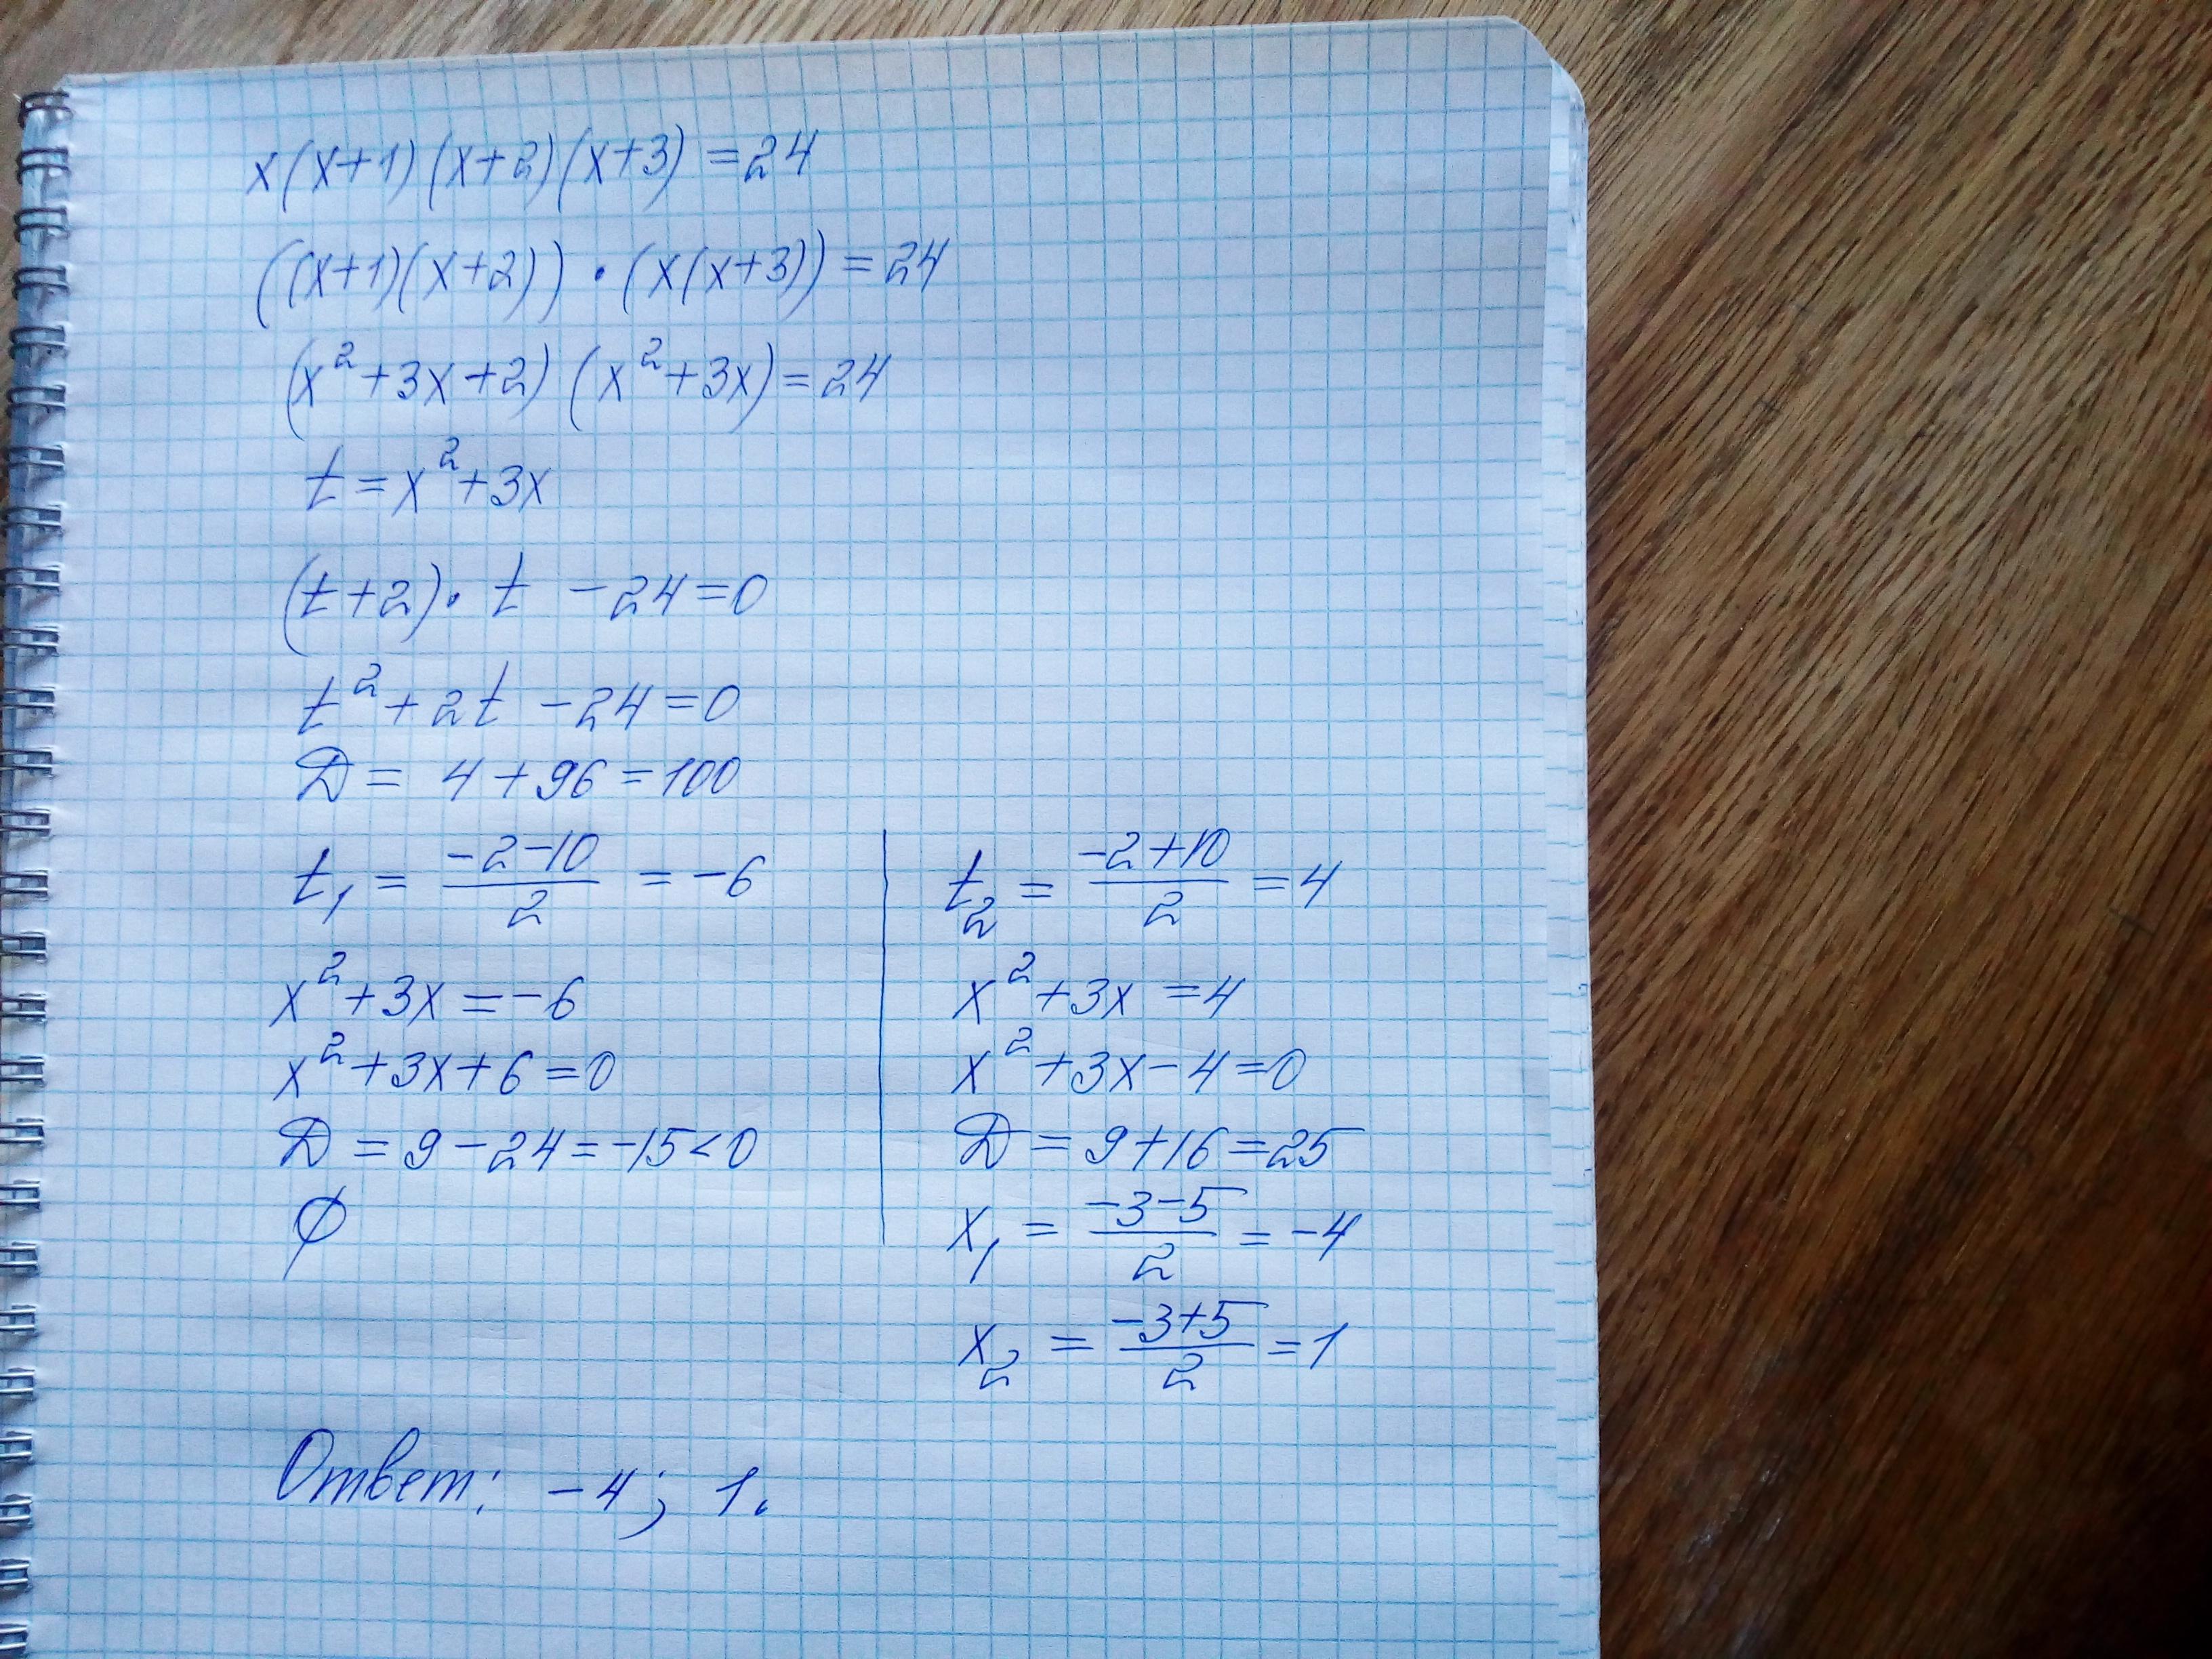 x(x+1)(x+2)(x+3) = 24
((x+1)(x+2)) · (x(x+3)) = 24
(x²+3x+2)(x²+3x) = 24
t = x²+3x
(t+2) · t - 24 = 0
t² + 2t - 24 = 0
D = 4 + 96 = 100
t₁ = (-2-10)/2 = -6
x²+3x = -6
x²+3x+6 = 0
D = 9 - 24 = -15 < 0
∅
t₂ = (-2+10)/2 = 4
x²+3x = 4
x²+3x-4 = 0
D = 9+16 = 25
x₁ = (-3-5)/2 = -4
x₂ = (-3+5)/2 = 1
Ответ: -4; 1.